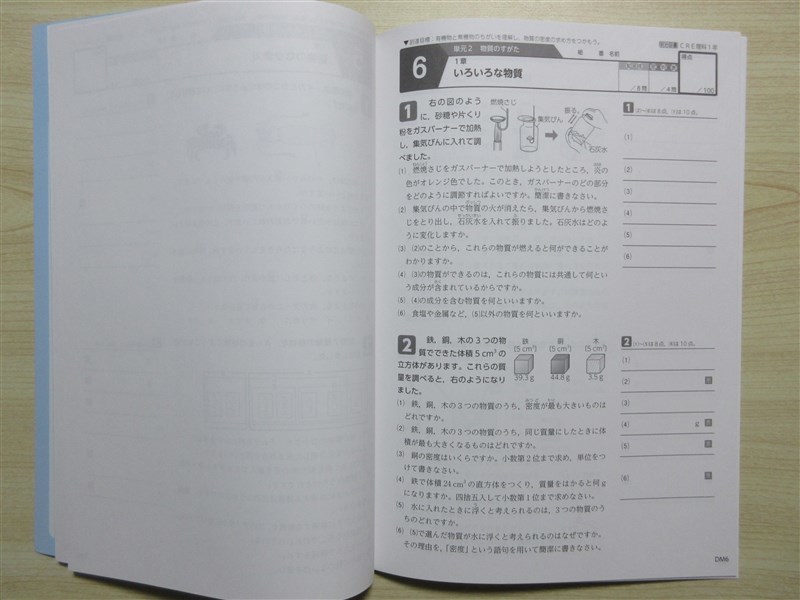 ▼到達目標：有機物と無機物のちがいを理解し、物質の密度の求め方をつかもう。
ＣＲＥ理科１年
6
単元２ 物質のすがた
組 番 名前
１章
いろいろな物質
得点
／８問
／４問
／100
1 右の図のよう
に，砂糖や片くり
粉をガスバーナーで加熱
し，集気びんに入れて調
べました。
燃焼さじ
集気びん
振る。
石灰水
(1) 燃焼さじをガスバーナーで加熱しようとしたところ，炎の
色がオレンジ色でした。このとき，ガスバーナーのどの部分
をどのように調節すればよいですか。簡潔に書きなさい。
(2) 集気びんの中で物質の火が消えたら，集気びんから燃焼さ
じをとり出し，石灰水を入れて振りました。石灰水はどのよ
うに変化しますか。
(3) (2)のことから，これらの物質が燃えると何ができることが
わかりますか。
(4) (3)の物質ができるのは，これらの物質には共通して何とい
う成分が含まれているからですか。
(5) (4)の成分を含む物質を何といいますか。
(6) 食塩や金属など，(5)以外の物質を何といいますか。
1
(1)
(2)
(3)
(4)
(5)
(6)
2 鉄，銅，木の３つの物
質でできた体積５cm³の
立方体があります。これらの質
量を調べると，右のようになり
ました。
鉄 銅 木
(5 cm³) (5 cm³) (5 cm³)
39.3 g 44.8 g 3.5 g
(1) 鉄，銅，木の３つの物質のうち，密度が最も大きいものは
どれですか。
(2) 鉄，銅，木の３つの物質のうち，同じ質量にしたときに体
積が最も大きくなるものはどれですか。
(3) 銅の密度はいくらですか。小数第２位まで求め，単位をつ
けて書きなさい。
(4) 鉄で体積24 cm³の直方体をつくり，質量をはかると何g
になりますか。四捨五入して小数第１位まで求めなさい。
(5) 水に入れたときに浮くと考えられるのは，３つの物質のう
ちのどれですか。
(6) (5)で選んだ物質が水に浮くと考えられるのはなぜですか。
その理由を，「密度」という語句を用いて簡潔に書きなさい。
2
(1)
(2)
(3)
(4) g
(5)
(6)